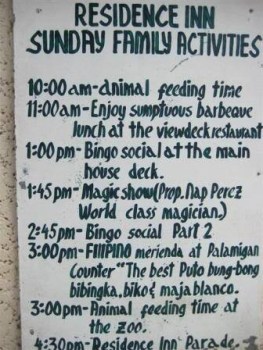 RESIDENCE INN
SUNDAY FAMILY ACTIVITIES
10:00am-Animal feeding time
11:00am-Enjoy sumptuous barbeque
lunch at the viewdeck restaurant
1:00pm-Bingo social at the main
house deck.
1:45pm-Magic show(Prop. Nap Perez
World class magician.)
2:45pm-Bingo social Part 2
3:00pm-FILIPINO merienda at Palamigan
Counter "The best Puto bung-bong
bibingka, biko & maja blanco.
3:00pm-Animal feeding time at
the zoo.
4:30pm-Residence Inn Parade.